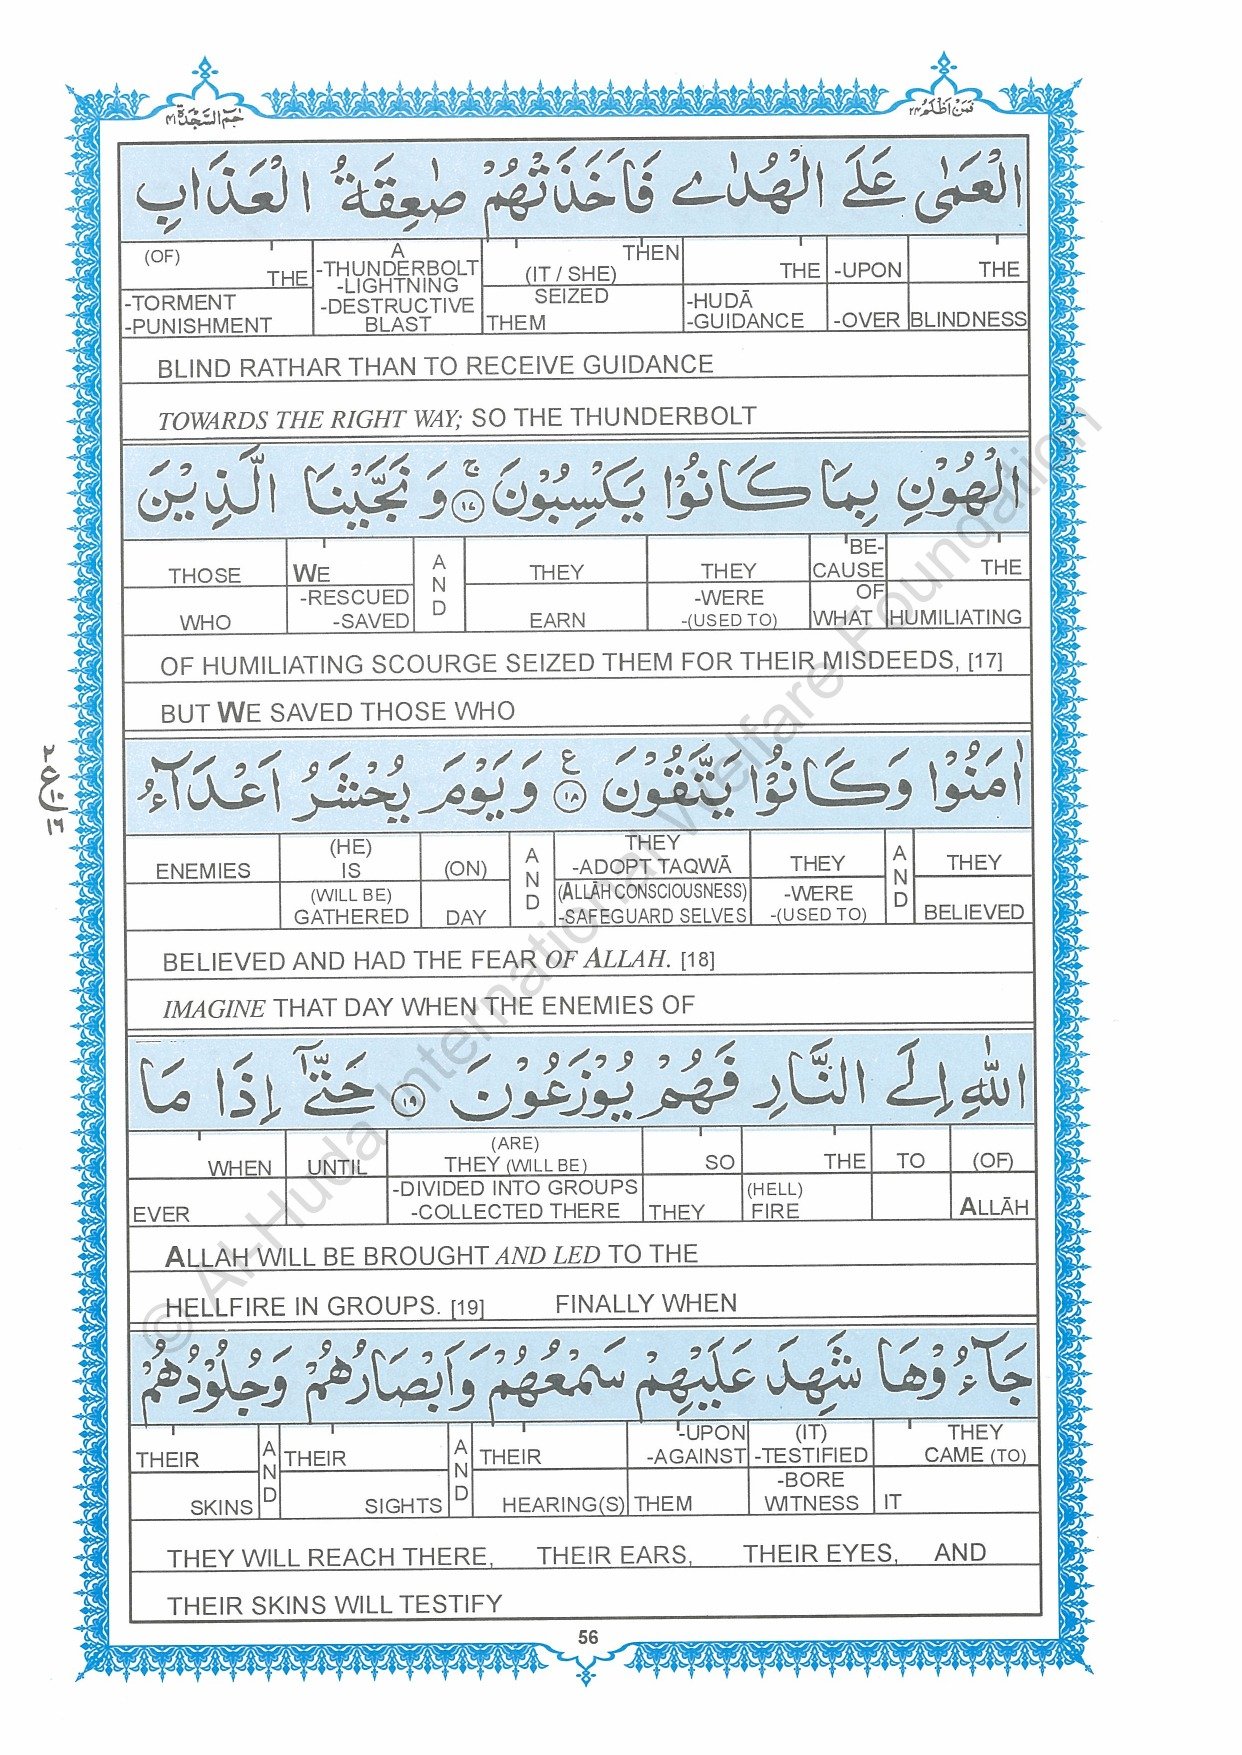 حٰمٓ السَّجْدَة ٤١
فَمَنْ اَظْلَمُ ٢٤
الْعَمٰى عَلَى الْهُدٰى فَاَخَذَتْهُمْ صٰعِقَةُ الْعَذَابِ
(OF) THE -TORMENT -PUNISHMENT | A -THUNDERBOLT -LIGHTNING -DESTRUCTIVE BLAST | THEN (IT / SHE) SEIZED THEM | THE -HUDĀ -GUIDANCE | -UPON -OVER | THE BLINDNESS
BLIND RATHAR THAN TO RECEIVE GUIDANCE
TOWARDS THE RIGHT WAY; SO THE THUNDERBOLT
الْهُوْنِ بِمَا كَانُوْا يَكْسِبُوْنَ ۚ ١٧ وَ نَجَّيْنَا الَّذِيْنَ
THOSE WHO | WE -RESCUED -SAVED | AND | THEY EARN | THEY -WERE -(USED TO) | BE-CAUSE OF WHAT | THE HUMILIATING
OF HUMILIATING SCOURGE SEIZED THEM FOR THEIR MISDEEDS, [17]
BUT WE SAVED THOSE WHO
اٰمَنُوْا وَكَانُوْا يَتَّقُوْنَ ١٨ ع وَيَوْمَ يُحْشَرُ اَعْدَآءُ
٢
ع
١٠
١٦
ENEMIES | (HE) IS (WILL BE) GATHERED | (ON) DAY | AND | THEY -ADOPT TAQWĀ (ALLĀH CONSCIOUSNESS) -SAFEGUARD SELVES | THEY -WERE -(USED TO) | AND | THEY BELIEVED
BELIEVED AND HAD THE FEAR OF ALLAH. [18]
IMAGINE THAT DAY WHEN THE ENEMIES OF
اللّٰهِ اِلَى النَّارِ فَهُمْ يُوْزَعُوْنَ ١٩ حَتّٰٓى اِذَا مَا
WHEN EVER | UNTIL | (ARE) THEY (WILL BE) -DIVIDED INTO GROUPS -COLLECTED THERE | SO THEY | THE (HELL) FIRE | TO | (OF) ALLĀH
ALLAH WILL BE BROUGHT AND LED TO THE
HELLFIRE IN GROUPS. [19] FINALLY WHEN
جَآءُوْهَا شَهِدَ عَلَيْهِمْ سَمْعُهُمْ وَاَبْصَارُهُمْ وَجُلُوْدُهُمْ
THEIR SKINS | AND | THEIR SIGHTS | AND | THEIR HEARING(S) | -UPON -AGAINST THEM | (IT) -TESTIFIED -BORE WITNESS | THEY CAME (TO) IT
THEY WILL REACH THERE, THEIR EARS, THEIR EYES, AND
THEIR SKINS WILL TESTIFY
56
© Al-Huda International Welfare Foundation